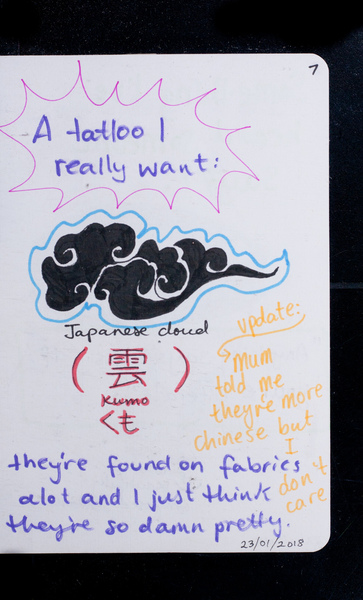 7
A tattoo I
really want:
Japanese cloud
(雲)
Kumo
くも
update:
Mum
told me
they're more
chinese but
I
don't
care
they're found on fabrics
alot and I just think
they're so damn pretty.
23/01/2018